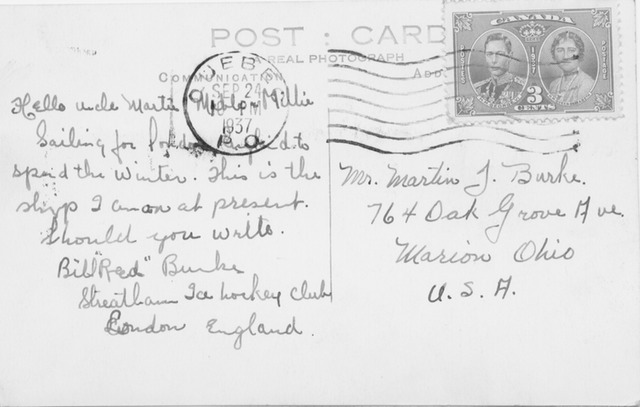 POST : CARD
A REAL PHOTOGRAPH
COMMUNICATION
CANADA
POSTAGE POSTES
1937
3 CENTS
QUEBEC
SEP 24
PM
1937
P.Q.
Hello uncle Martin Millie
Sailing for London England to
spend the winter. This is the
shipp I am on at present.
Should you write.
Bill "Red" Burke
Streatham Ice hockey Club
London England.
Mr. Martin J. Burke.
764 Oak Grove Ave.
Marion Ohio
U. S. A.